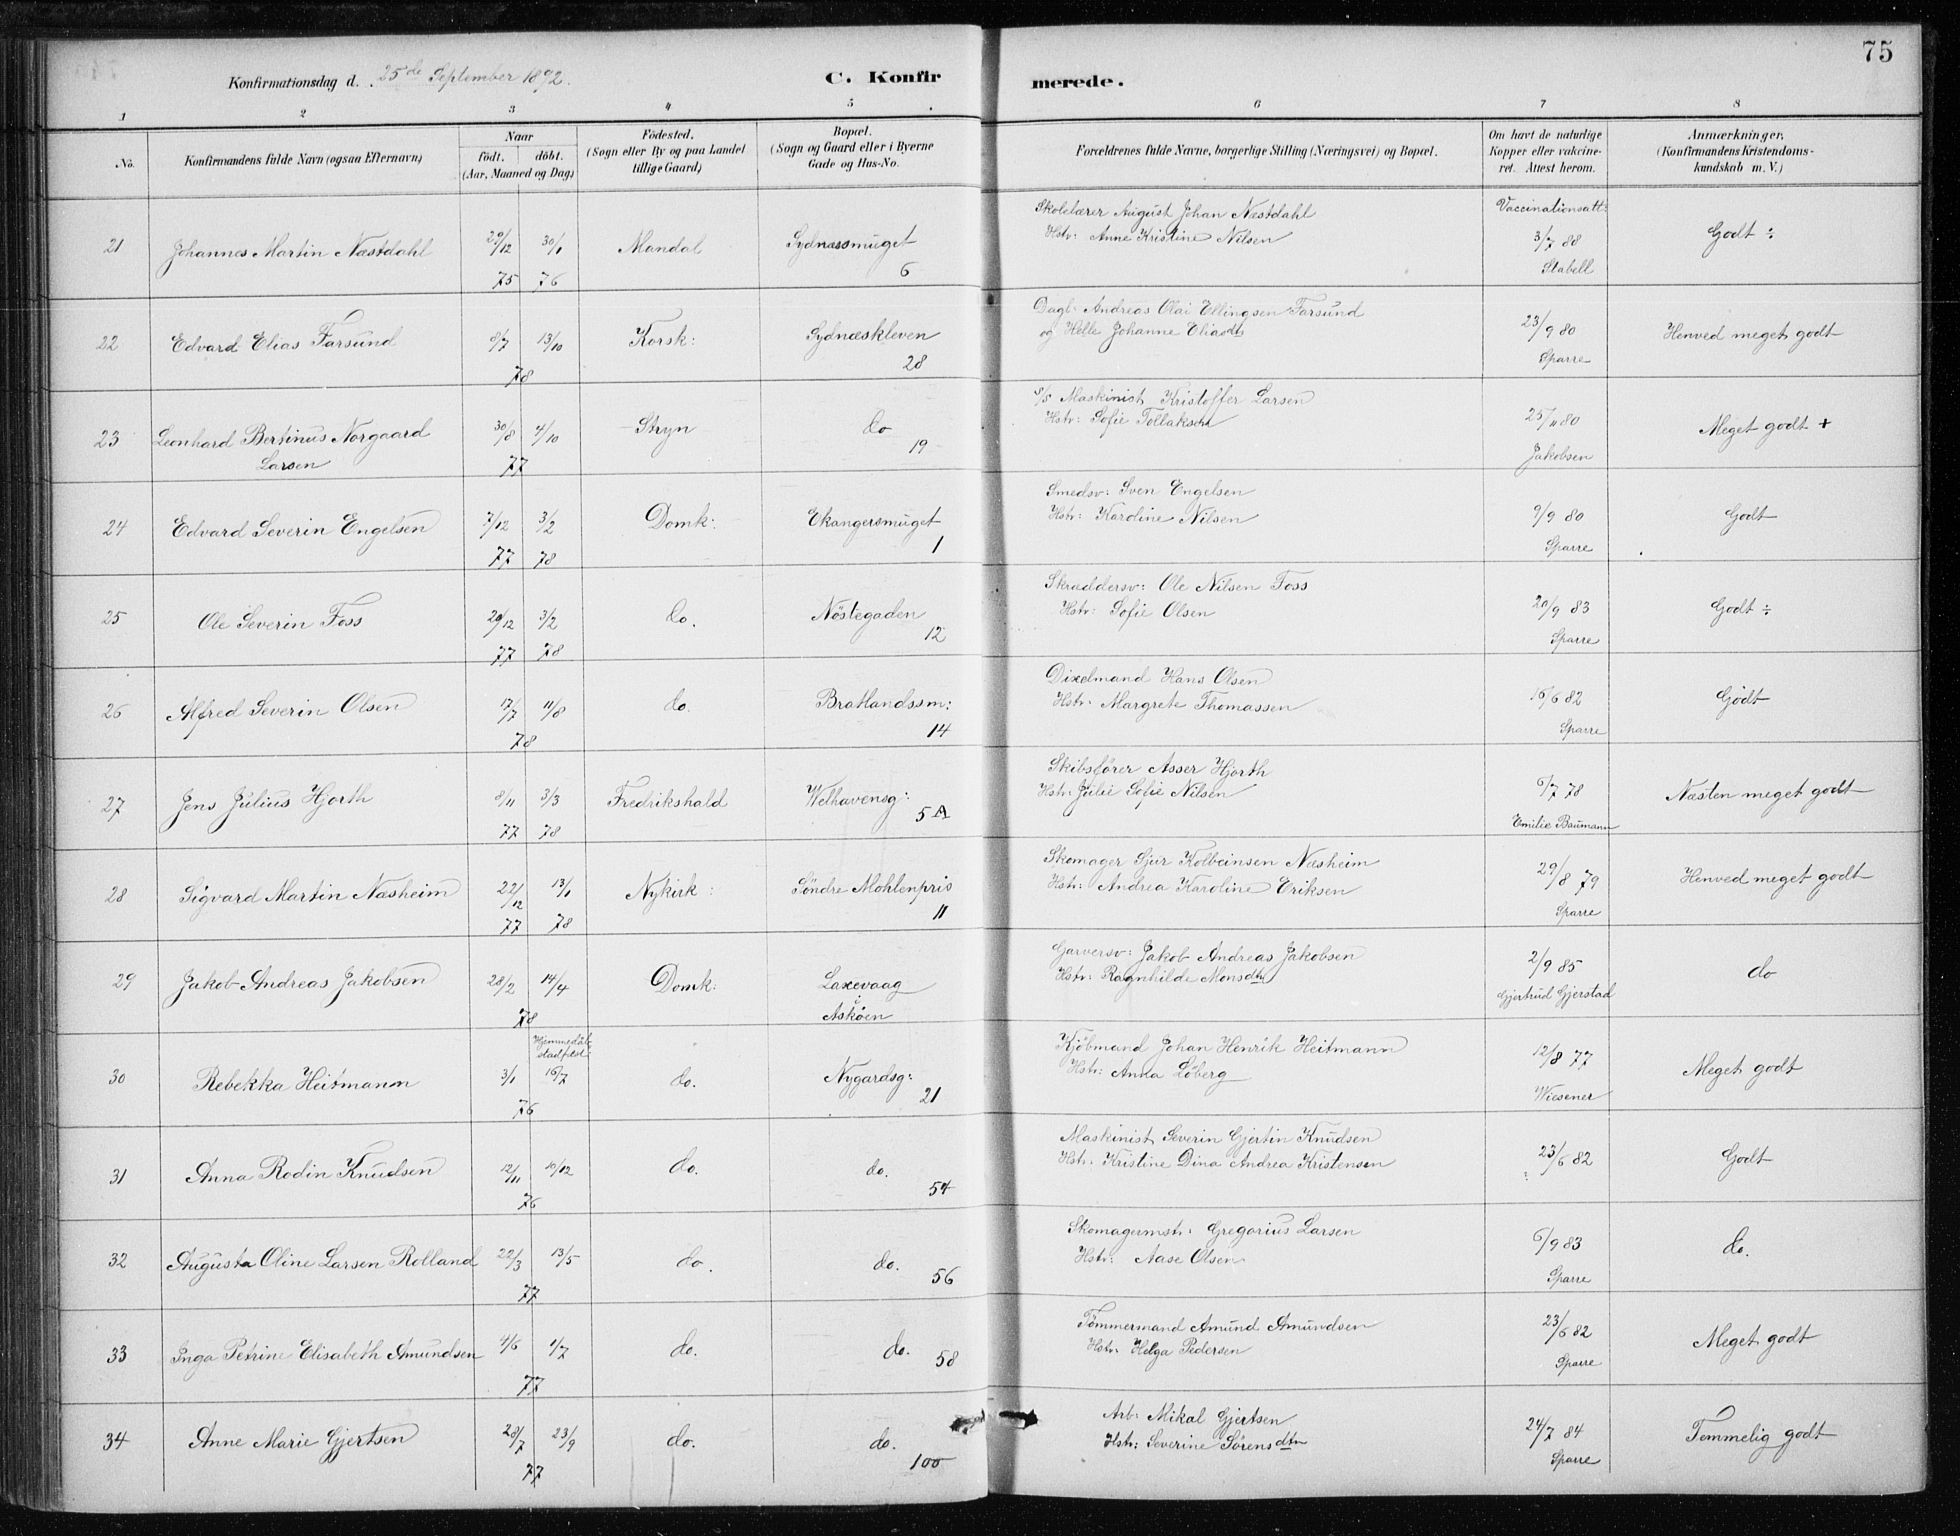 75
Konfirmationsdag d. 25de September 1892.
C. Konfirmerede.
1 2 3 4 5 6 7 8
No.
Konfirmandens fulde Navn (ogsaa Efternavn)
Naar
födt. döbt.
(Aar, Maaned og Dag)
Födested.
(Sogn eller By og paa Landet
tillige Gaard)
Bopæl.
(Sogn og Gaard eller i Byerne
Gade og Hus-No.
Forældrenes fulde Navne, borgerlige Stilling (Næringsvei) og Bopæl.
Om havt de naturlige
Kopper eller vakcine-
ret. Attest herom.
Anmærkninger.
(Konfirmandens Kristendoms-
kundskab m. V.)
21 Johannes Martin Næstdahl 29/12 75 30/1 76 Mandal Sydnæssmuget 6
Skolelærer August Johan Næstdahl
Hstr: Anne Kristine Nilsen
Vaccinationsatt:
3/7 88
Stabell
Godt ÷
22 Edvard Elias Farsund 8/7 13/10 78 Korsk: Sydnæskleven 28
Dagl: Andreas Olai Ellingsen Farsund
og Helle Johanne Eliasdtr
23/9 80
Sparre
Henved meget godt
23 Leonhard Bertinus Norgaard
Larsen
30/8 4/10 77 Stryn do 19
s/s Maskinist Kristoffer Larsen
Hstr: Sofie Tollaksen
25/11 80
Jakobsen
Meget godt +
24 Edvard Severin Engelsen 7/12 77 3/2 78 Domk: Ekangersmuget 1
Smedsv: Sven Engelsen
Hstr: Karoline Nilsen
9/9 80
Sparre
Godt
25 Ole Severin Foss 29/12 77 3/2 78 do. Nöstegaden 12
Skræddersv: Ole Nilsen Foss
Hstr: Sofie Olsen
20/9 83
Sparre
Godt ÷
26 Alfred Severin Olsen 17/7 11/8 78 do. Bratlandssm: 14
Dixelmand Hans Olsen
Hstr: Margrete Thomassen
16/6 82
Sparre
Godt
27 Jens Julius Hjorth 8/11 77 3/3 78 Fredrikshald Welhavensg: 5A
Skibsförer Asser Hjorth
Hstr: Julie Sofie Nilsen
6/7 78
Emilie Baumann
Næsten meget godt
28 Sigvard Martin Næsheim 22/12 77 13/1 78 Nykirk: Söndre Mohlenpris 11
Skomager Sjur Kolbeinsen Næsheim
Hstr: Andrea Karoline Eriksen
29/8 79
Sparre
Henved meget godt
29 Jakob Andreas Jakobsen 28/2 14/4 78 Domk: Laxevaag
i
Asköen
Garversv: Jakob Andreas Jakobsen
Hstr: Ragnhilde Monsdtr
2/9 85
Gjertrud Gjerstad
do
30 Rebekka Heitmann 3/1 Hjemmedåb
stadfæst
16/7 76 do. Nygardsg: 21
Kjöbmand Johan Henrik Heitmann
Hstr: Anna Löberg
12/8 77
Wiesener
Meget godt
31 Anna Rodin Knudsen 12/11 10/12 76 do. do. 54
Maskinist Severin Gjertin Knudsen
Hstr: Kristine Dina Andrea Kristensen
23/6 82
Godt
32 Augusta Oline Larsen Rolland 22/3 13/5 77 do. do. 56
Skomagermstr: Gregorius Larsen
Hstr: Aase Olsen
6/9 83
Sparre
do.
33 Inga Petrine Elisabeth Amundsen 4/6 1/7 77 do. do. 58
Tömmermand Amund Amundsen
Hstr: Helga Pedersen
23/6 82
Sparre
Meget godt
34 Anne Marie Gjertsen 28/7 23/9 77 do. do. 100
Arb: Mikal Gjertsen
Hstr: Severine Sörensdtr
24/7 84
Sparre
Temmelig godt